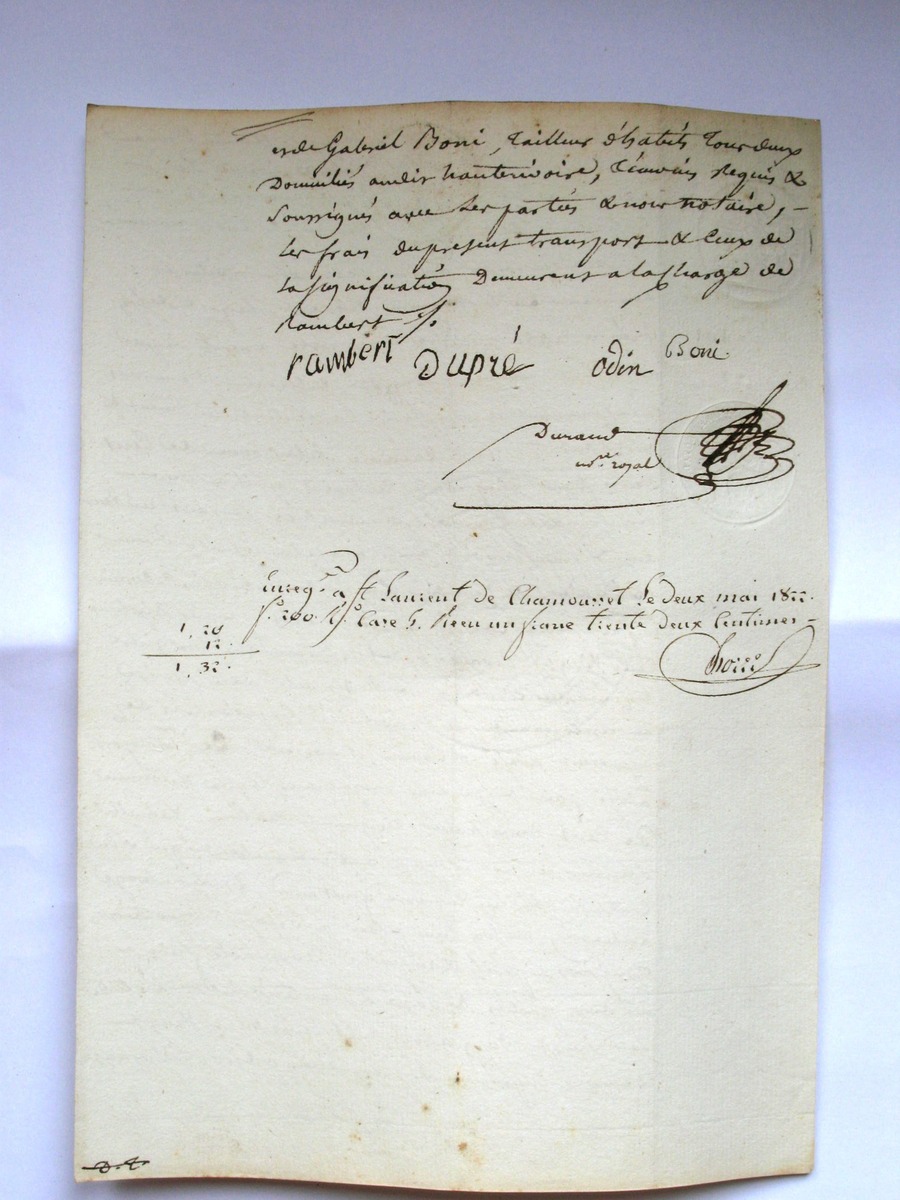 et de Gabriel Boni, tailleur d'habits tous deux
Domiciliés audit hauterivoire, témoins Requis &
Soussignés avec les parties & nous notaire, –
les frais du present transport & ceux de
la signification Demeurent a la charge de
Rambert ./.
rambert Dupré odin Boni
Durand
not.re royal
Enreg.é a St Laurent de Chamousset le deux mai 1822.
f.o 200 Case 5. Reçu un franc trente deux Centimes –
1, 20
12.
1, 32.